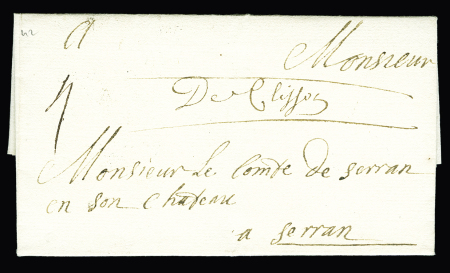 a
Monsieur
De Clisson
4
Monsieur Le Comte De serran
en son Chateau
a serran